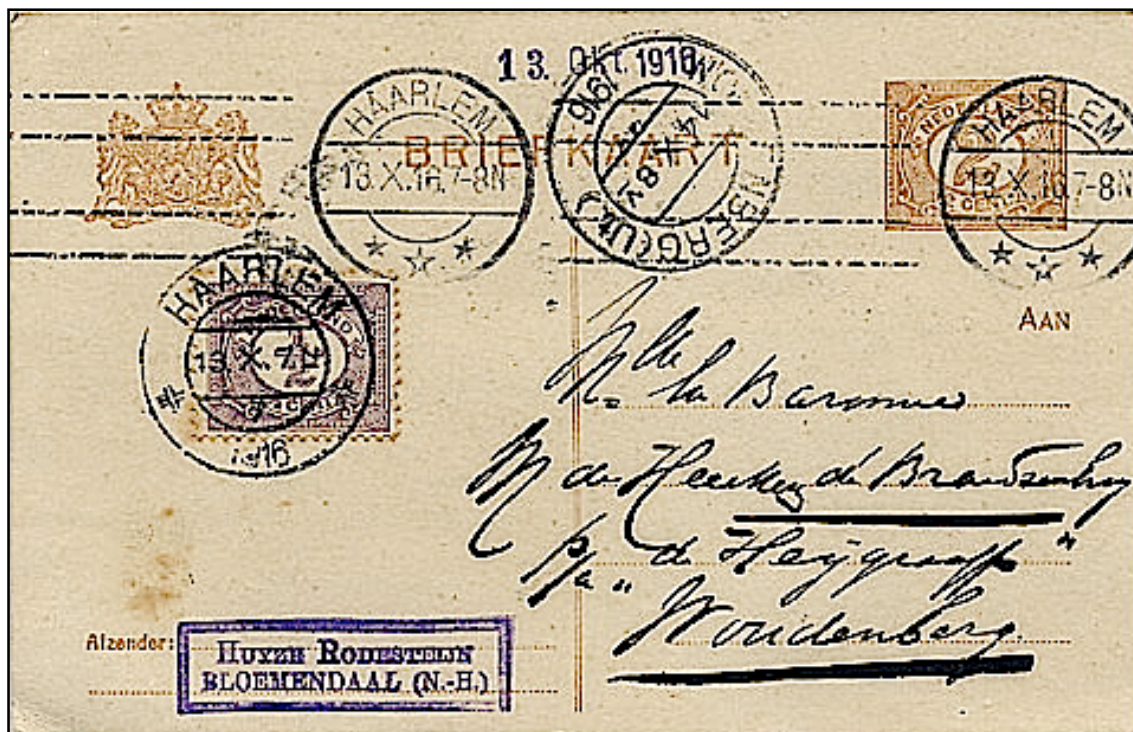 13. Okt. 1916
HAARLEM
13.X.16.7-8N
BRIEFKAART
1916
NBERG(Ut.)
NEDERLAND
CENT
HAARLEM
13.X.16.7-8N
HAARLEM
13.X.7-
1916
AAN
Mlle la Baronne
M de Heeckeren de Brantsenburg
p/a „de Heygraaff"
Woudenberg.
Afzender:
HUYZE RODESTEIJN
BLOEMENDAAL (N.-H.)